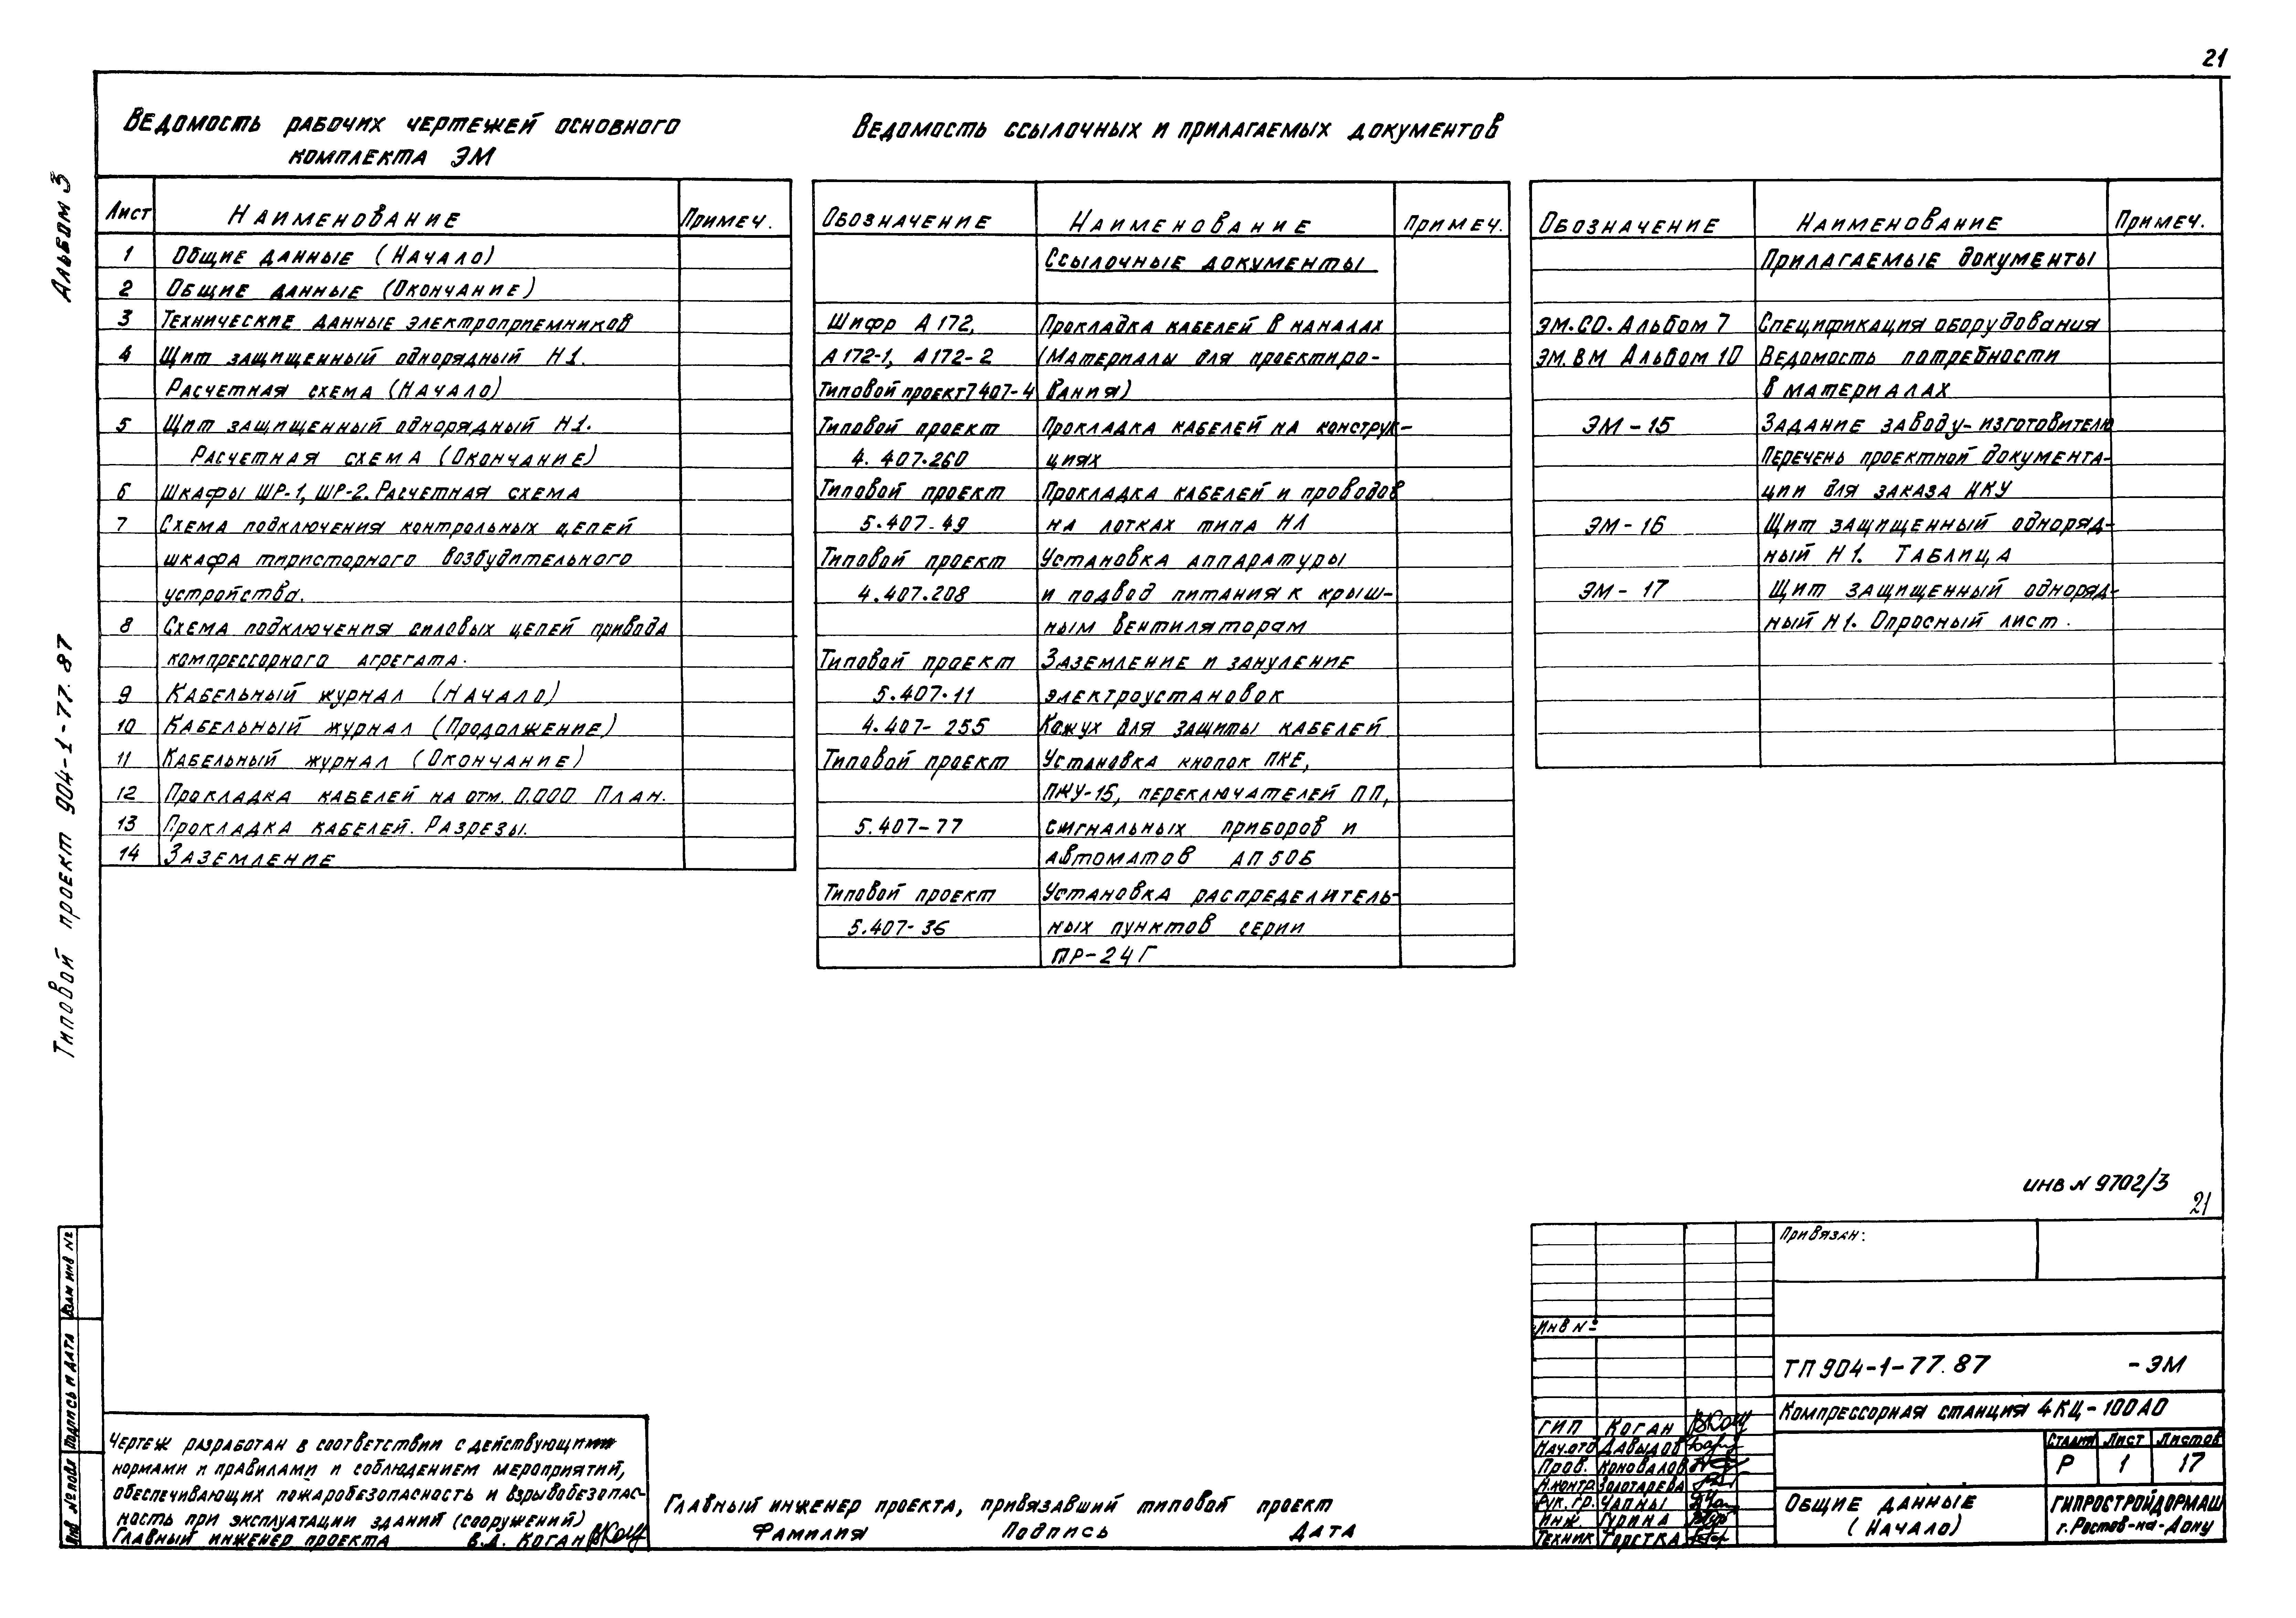 21
Альбом 3
Типовой проект 904-1-77.87
Ведомость рабочих чертежей основного
комплекта ЭМ
Лист Наименование Примеч.
1 Общие данные (Начало)
2 Общие данные (Окончание)
3 Технические данные электроприемников
4 Щит защищенный однорядный Н1.
Расчетная схема (Начало)
5 Щит защищенный однорядный Н1.
Расчетная схема (Окончание)
6 Шкафы ШР-1, ШР-2. Расчетная схема
7 Схема подключения контрольных цепей
шкафа тиристорного возбудительного
устройства.
8 Схема подключения силовых цепей привода
компрессорного агрегата.
9 Кабельный журнал (Начало)
10 Кабельный журнал (Продолжение)
11 Кабельный журнал (Окончание)
12 Прокладка кабелей на отм. 0.000 План.
13 Прокладка кабелей. Разрезы.
14 Заземление
Ведомость ссылочных и прилагаемых документов
Обозначение Наименование Примеч.
Ссылочные документы
Шифр А172, Прокладка кабелей в каналах
А172-1, А172-2 (Материалы для проектиро-
Типовой проект 7407-4 вания)
Типовой проект Прокладка кабелей на конструк-
4.407.260 циях
Типовой проект Прокладка кабелей и проводов
5.407-49 на лотках типа НЛ
Типовой проект Установка аппаратуры
4.407.208 и подвод питания к крыш-
ным вентиляторам
Типовой проект Заземление и зануление
5.407.11 электроустановок
4.407-255 Кожух для защиты кабелей
Типовой проект Установка кнопок ПКЕ,
ПКУ-15, переключателей ПП,
5.407-77 сигнальных приборов и
автоматов АП50Б
Типовой проект Установка распределитель-
5.407-36 ных пунктов серии
ПР-24Г
Обозначение Наименование Примеч.
Прилагаемые документы
ЭМ.СО. Альбом 7 Спецификация оборудования
ЭМ.ВМ Альбом 10 Ведомость потребности
в материалах
ЭМ-15 Задание заводу-изготовителю
Перечень проектной документа-
ции для заказа НКУ
ЭМ-16 Щит защищенный одноряд-
ный Н1. Таблица
ЭМ-17 Щит защищенный одноряд-
ный Н1. Опросный лист.
инв N 9702/3
21
Привязан:
Инв №
ТП 904-1-77.87 -ЭМ
Компрессорная станция 4КЦ-100А0
Стадия Лист Листов
Р 1 17
Общие данные
(Начало)
ГИПРОСТРОЙДОРМАШ
г. Ростов-на-Дону
ГИП Коган
Нач.отд Давыдов
Пров. Коновалов
Н.контр. Золотарева
Рук.гр. Чапны
Инж. Гурина
Техник Горстка
Взам инв №
Подпись и дата
Инв № подл
Чертеж разработан в соответствии с действующими
нормами и правилами и соблюдением мероприятий,
обеспечивающих пожаробезопасность и взрывобезопас-
ность при эксплуатации зданий (сооружений)
Главный инженер проекта В.Д. Коган
Главный инженер проекта, привязавший типовой проект
Фамилия Подпись Дата